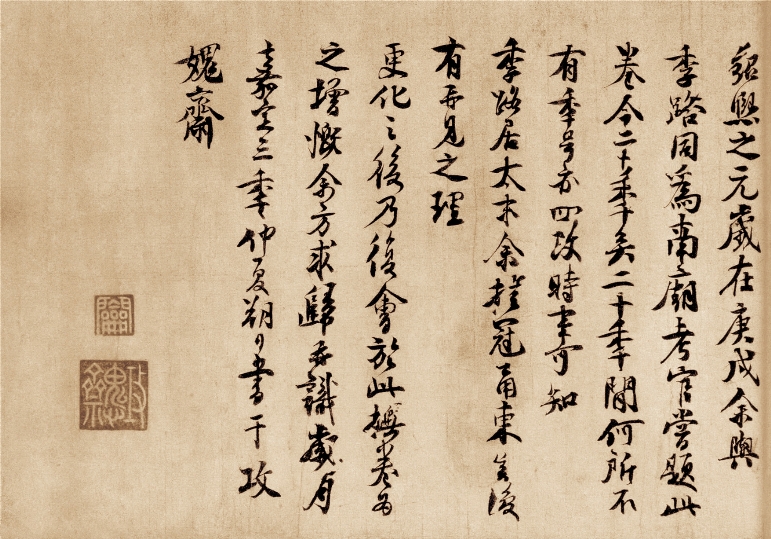 紹熙之元歲在庚戌余與
季路同爲南廟考官嘗題此
卷今二十秊矣二十秊間何所不
有秊号亦四改時事可知
季路居太末余掛冠甬東豈復
有再見之理
更化之後乃復會於此撫卷為
之增慨余方求歸再識歲月
嘉定三秊仲夏朔日書于攻
媿齋
攻媿齋